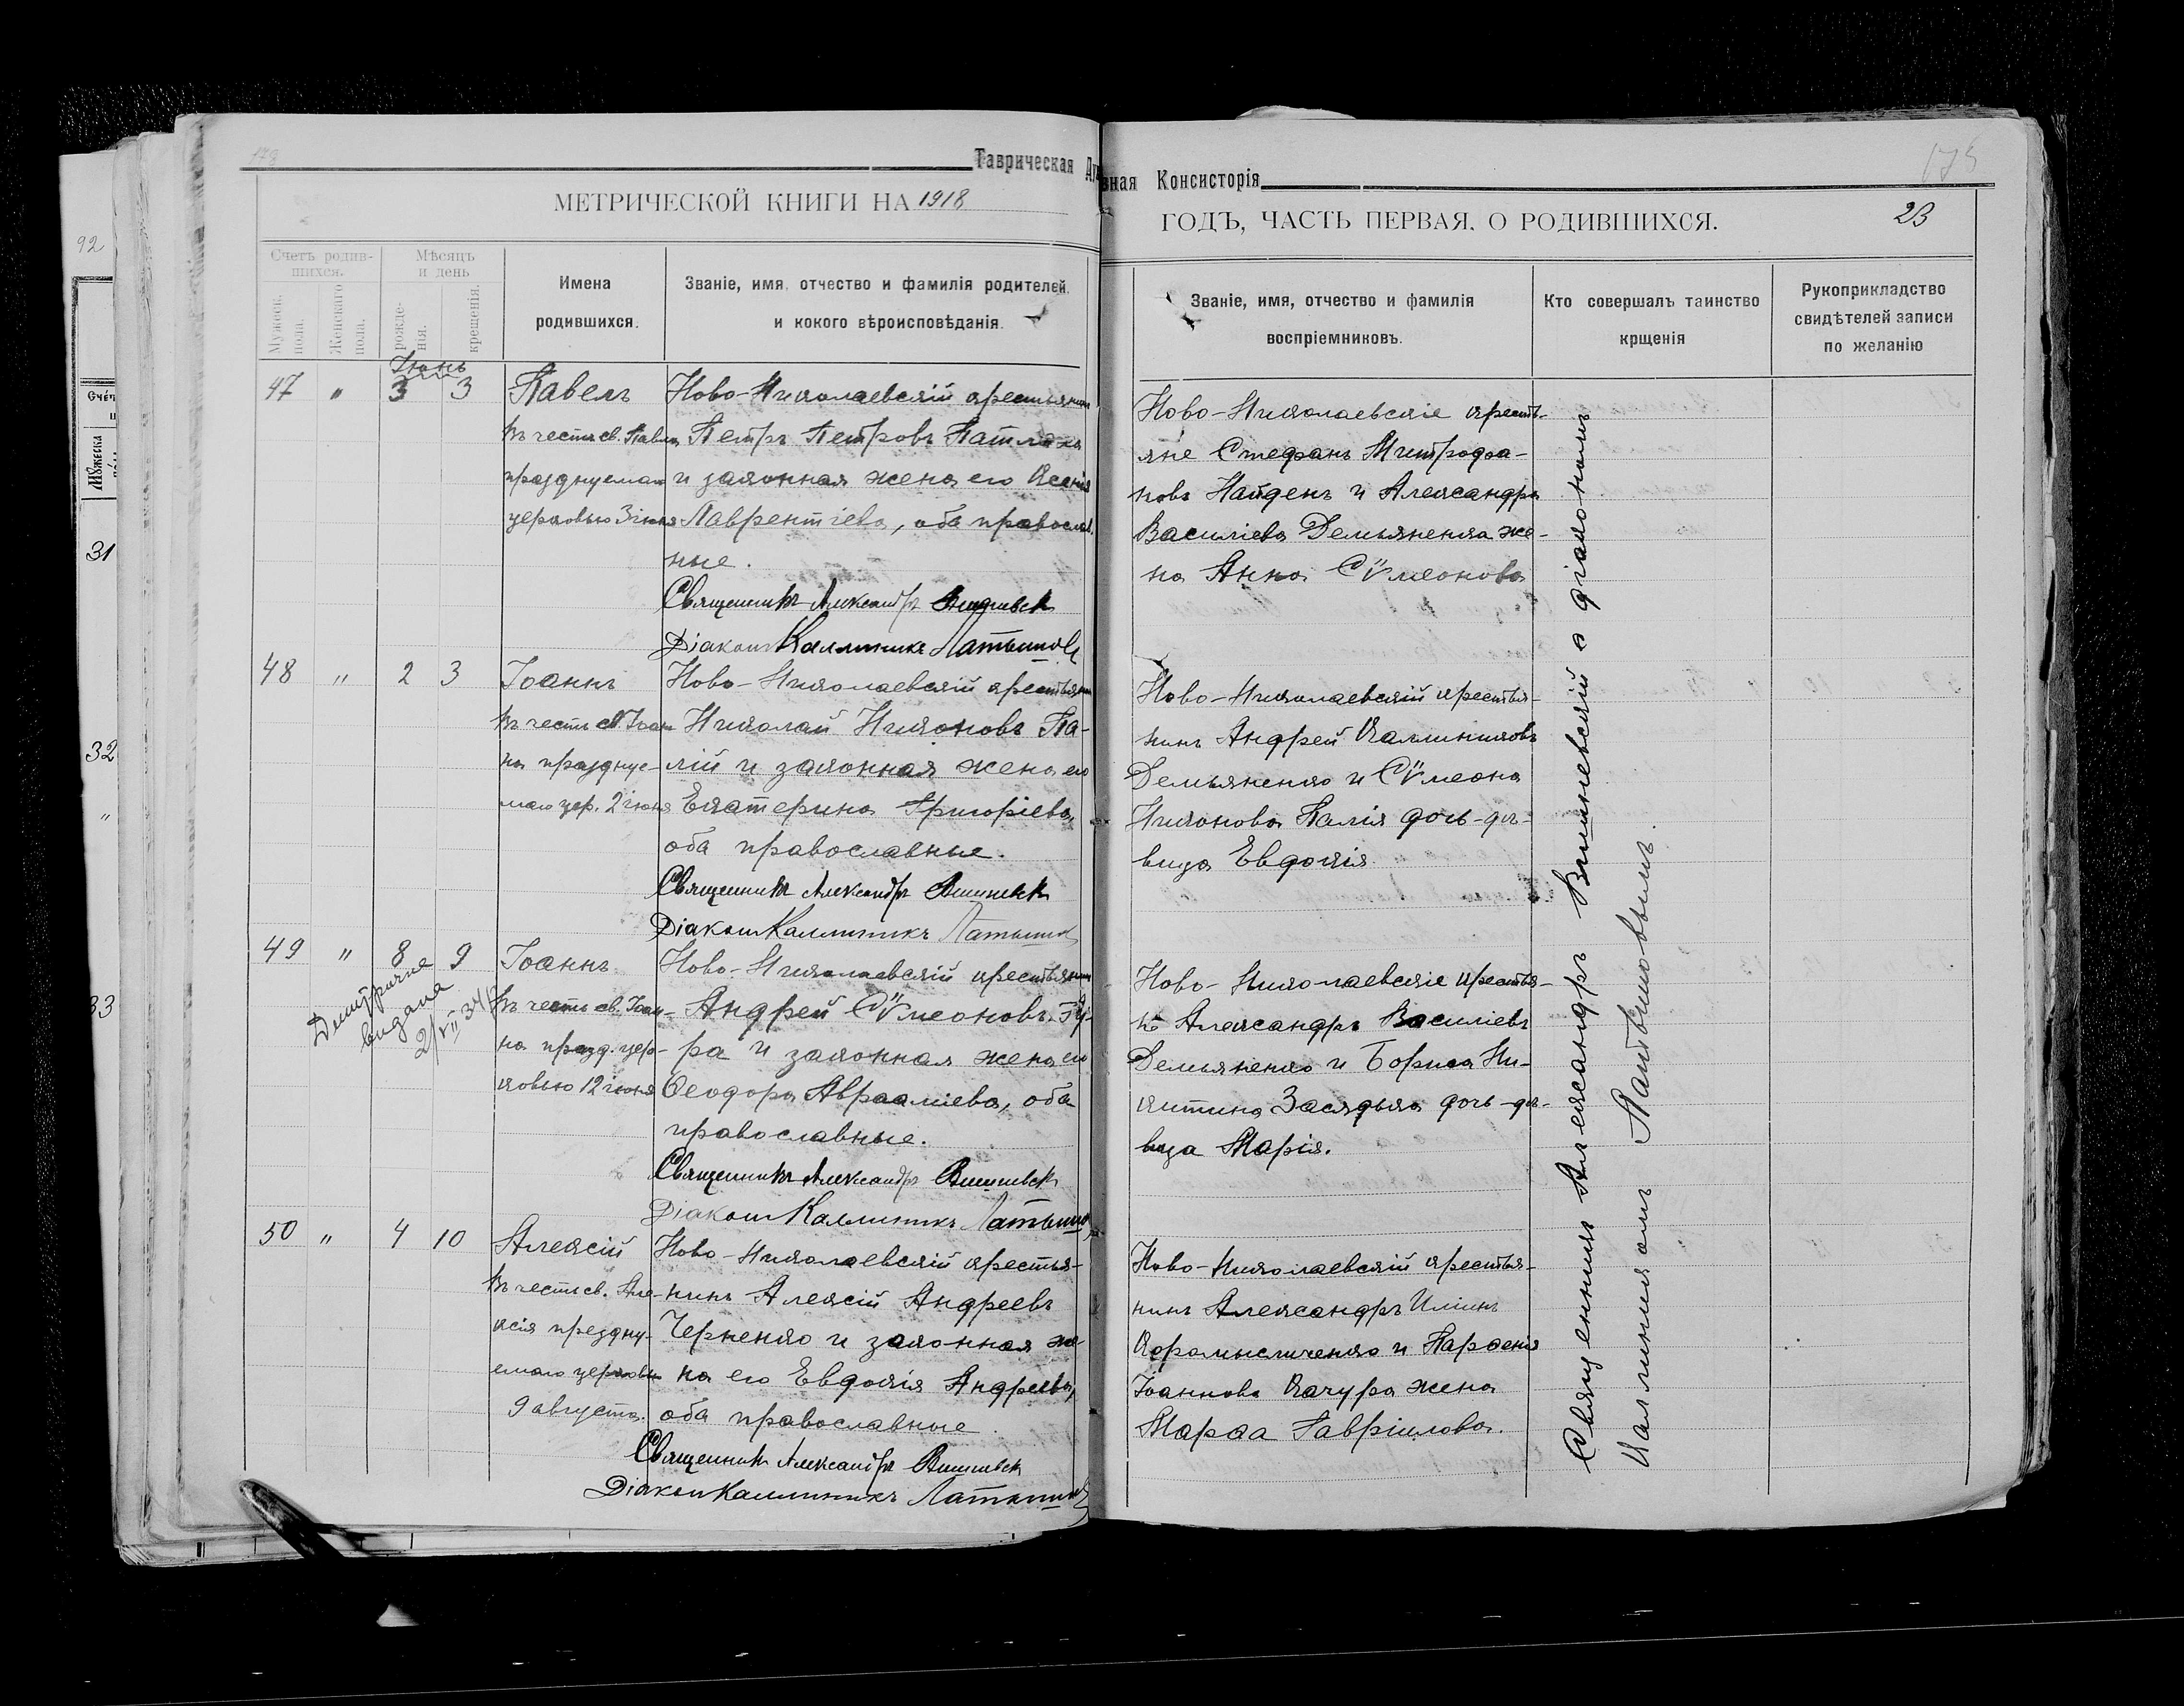 Таврическая Духовная Консисторія
175
МЕТРИЧЕСКОЙ КНИГИ НА 1918
ГОДЪ, ЧАСТЬ ПЕРВАЯ, О РОДИВШИХСЯ.
23
92
Счетъ родив-
шихся.
Мѣсяцъ
и день
Мужеск.
пола.
Женскаго
пола.
рожде-
нія.
крещенія.
Имена
родившихся.
Званіе, имя, отчество и фамилія родителей,
и кокого вѣроисповѣданія.
Званіе, имя, отчество и фамилія
воспріемниковъ.
Кто совершалъ таинство
крщенія
Рукоприкладство
свидѣтелей записи
по желанію
31
32
33
Іюнь
47 " 3 3
Павелъ
въ честь св. Павла
празднуемаго
церковью 3 іюня
Ново-Николаевскій крестьянин
Петръ Петровъ
и законная жена его Ксенія
Лаврентіева, оба православ-
ные.
Священникъ Александръ Вишневск
Діаконъ Каллиникъ Латышов
Ново-Николаевскіе кресть-
яне Стефанъ Митрофа-
новъ Найденъ и Александра
Василіева Демьяненка же-
на Анна Сѵмеонова
48 " 2 3
Іоаннъ
въ честь св. Іоан-
на праздпуе-
маго цер. 2 іюня
Ново-Николаевскій крестьянин
Николай Никоновъ Па-
лій и законная жена его
Екатерина Григоріева,
оба православные.
Священникъ Александръ Вишневск
Діаконъ Каллиникъ Латышов
Ново-Николаевскій крестья-
нинъ Андрей Каллиниковъ
Демьяненко и Сѵмеона
Никонова Палія дочь-дѣ-
вица Евдокія.
49 " 8 9
выдана
2/VII 34
Іоаннъ
въ честь св. Іоан-
на празд. цер-
ковью 12 іюня
Ново-Николаевскій крестьянин
Андрей Сѵмеоновъ Гу-
ра и законная жена его
Ѳеодора Авраамiева, оба
православные.
Священникъ Александръ Вишневск
Діаконъ Каллиникъ Латышов
Ново-Николаевскіе крестья-
не Александръ Василіевъ
Демьяненко и Бориса Ни-
китина Засядька дочь-дѣ-
вица Марія.
50 " 4 10
Алексій
въ честь св. Але-
ксія праздну-
емаго церковью
9 августа.
Ново-Николаевскій крестья-
нинъ Алексій Андреевъ
Черненко и законная же-
на его Евдокія Андреева,
оба православные.
Священникъ Александръ Вишневск
Діаконъ Каллиникъ Латышов
Ново-Николаевскій крестья-
нинъ Александръ Иліинъ
Коромысличенко и Парѳенія
Іоаннова Качура жена
Марѳа Гавріилова.
Священникъ Александръ Вишневскій с діакономъ
Каллиникомъ Латышовымъ.